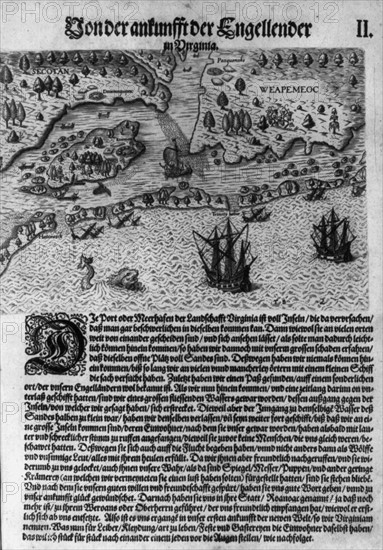 Von der ankunfft der Engellender
II.
zu Virginia.
SECOTAN
WEAPEMEOC
Pasquenoke
Roanoac
Trinety harbor
Hatorasck
Die Port oder Meerhafen der Landschafft Virginia ist voll Inseln / die da verursachen /
daß man gar beschwerlichen in dieselben kommen kan. Dann wiewol sie an vielen orten
weit von einander gescheiden sind / vnd sich ansehen lässet / als solte man dadurch leicht-
lich können hinein kommen / so haben wir dannoch mit vnserm grossen schaden erfahren /
daß dieselben offne Plätz voll Sandes sind. Deßwegen haben wir niemals können hin-
ein kommen / biß so lang wir an vielen vnnd mancherley örtern mit einem kleinen Schiff
die sach versucht haben. Zuletzt haben wir einen Paß gefunden / auff einem sonderlichen
ort / der vnsern Engelländern wol bekannt ist. Als wir nun hinein kommen / vnd eine zeitlang darinn on vn-
terlaß geschifft hatten / sind wir eines grossen fliessenden Wassers gewar worden / dessen außgang gegen der
Inseln / von welcher wir gesagt haben / sich erstrecket. Dieweil aber der Jngang zu demselbigen Wasser deß
Sandes halben zu klein war / haben wir denselben verlassen /
grosse Inseln kommen sind / deren Einwohner / nach dem sie vnser gewar worden / haben alsobald mit lau-
ter vnd schrecklicher stimm zu ruffen angefangen / dieweil sie zuvor keine Menschen / die vns gleich weren / be-
schawet hatten. Deßwegen sie sich auch auff die Flucht begeben haben / vnnd nicht anders dann als Wölff
vnd vnsinnige Leut / alles mit ihrem heulen erfüllt. Da wir ihnen aber freundlich nachgeruffen / vnd sie wi-
derumb zu vns gelocket / auch ihnen vnser Wahr / als da sind Spiegel / Messer / Puppen / vnd ander geringe
Krämerey (an welchen wir vermeyneten sie einen lust haben solten) fürgestellt hatten / sind sie stehen blieben.
Vnd nach dem sie vnsern guten willen vnd freundschafft gespürt / haben sie vns gute Wort geben / vnnd zu
vnser ankunfft glück gewündschet. Darnach haben sie vns in ihre Statt / Roanoac genannt / ja daß noch
mehr ist / zu ihrem Weroans oder Oberherrn geführet / der vns freundlich empfangen hat / wiewol er erst-
lich sich ob vns entsetzte. Also ist es vns ergangen in vnser ersten ankunfft der newen Welt / so wir Virginiam
nennen. Was nun für Leiber / Kleydung / art zu leben / Feste vnd Gastereyen die Einwohner daselbst haben /
das wil ich stück für stück nach einander einem jeden vor die Augen stellen / wie nachfolget.